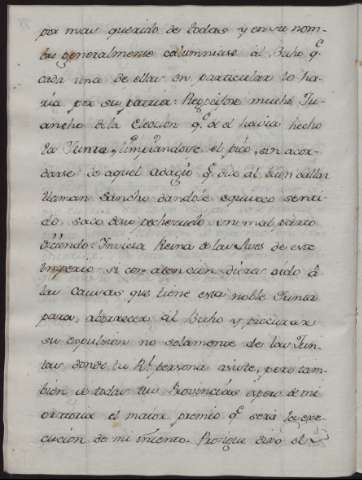 por mui querido de todas y en su nom-
bre generalmente calumniase al Buho q.e
cada una de ellas en particular lo ha-
ria por su parte. Regocijose mucho Ju-
ancho de la Eleccion q.e de el havia hecho
la Junta, limpiandose el pico, sin acor-
darse de aquel adagio q.e dice al buen callar
llaman Sancho dandole equivoco senti-
do, saco de su pechezuelo un mal
diciendo: Invicta Reina de las Aves de este
Imperio si con atencion dieras oido á
las causas que tiene esta noble Junta
para aborrecer al Buho y procurar
su expulsion no solamente de las Jun-
tas donde tu Rl persona asiste, pero tam-
bien de todas tus Provincias espero de mi
oratoria el maior premio q.e será la exe-
cucion de mi intento. Prosigue dixo el